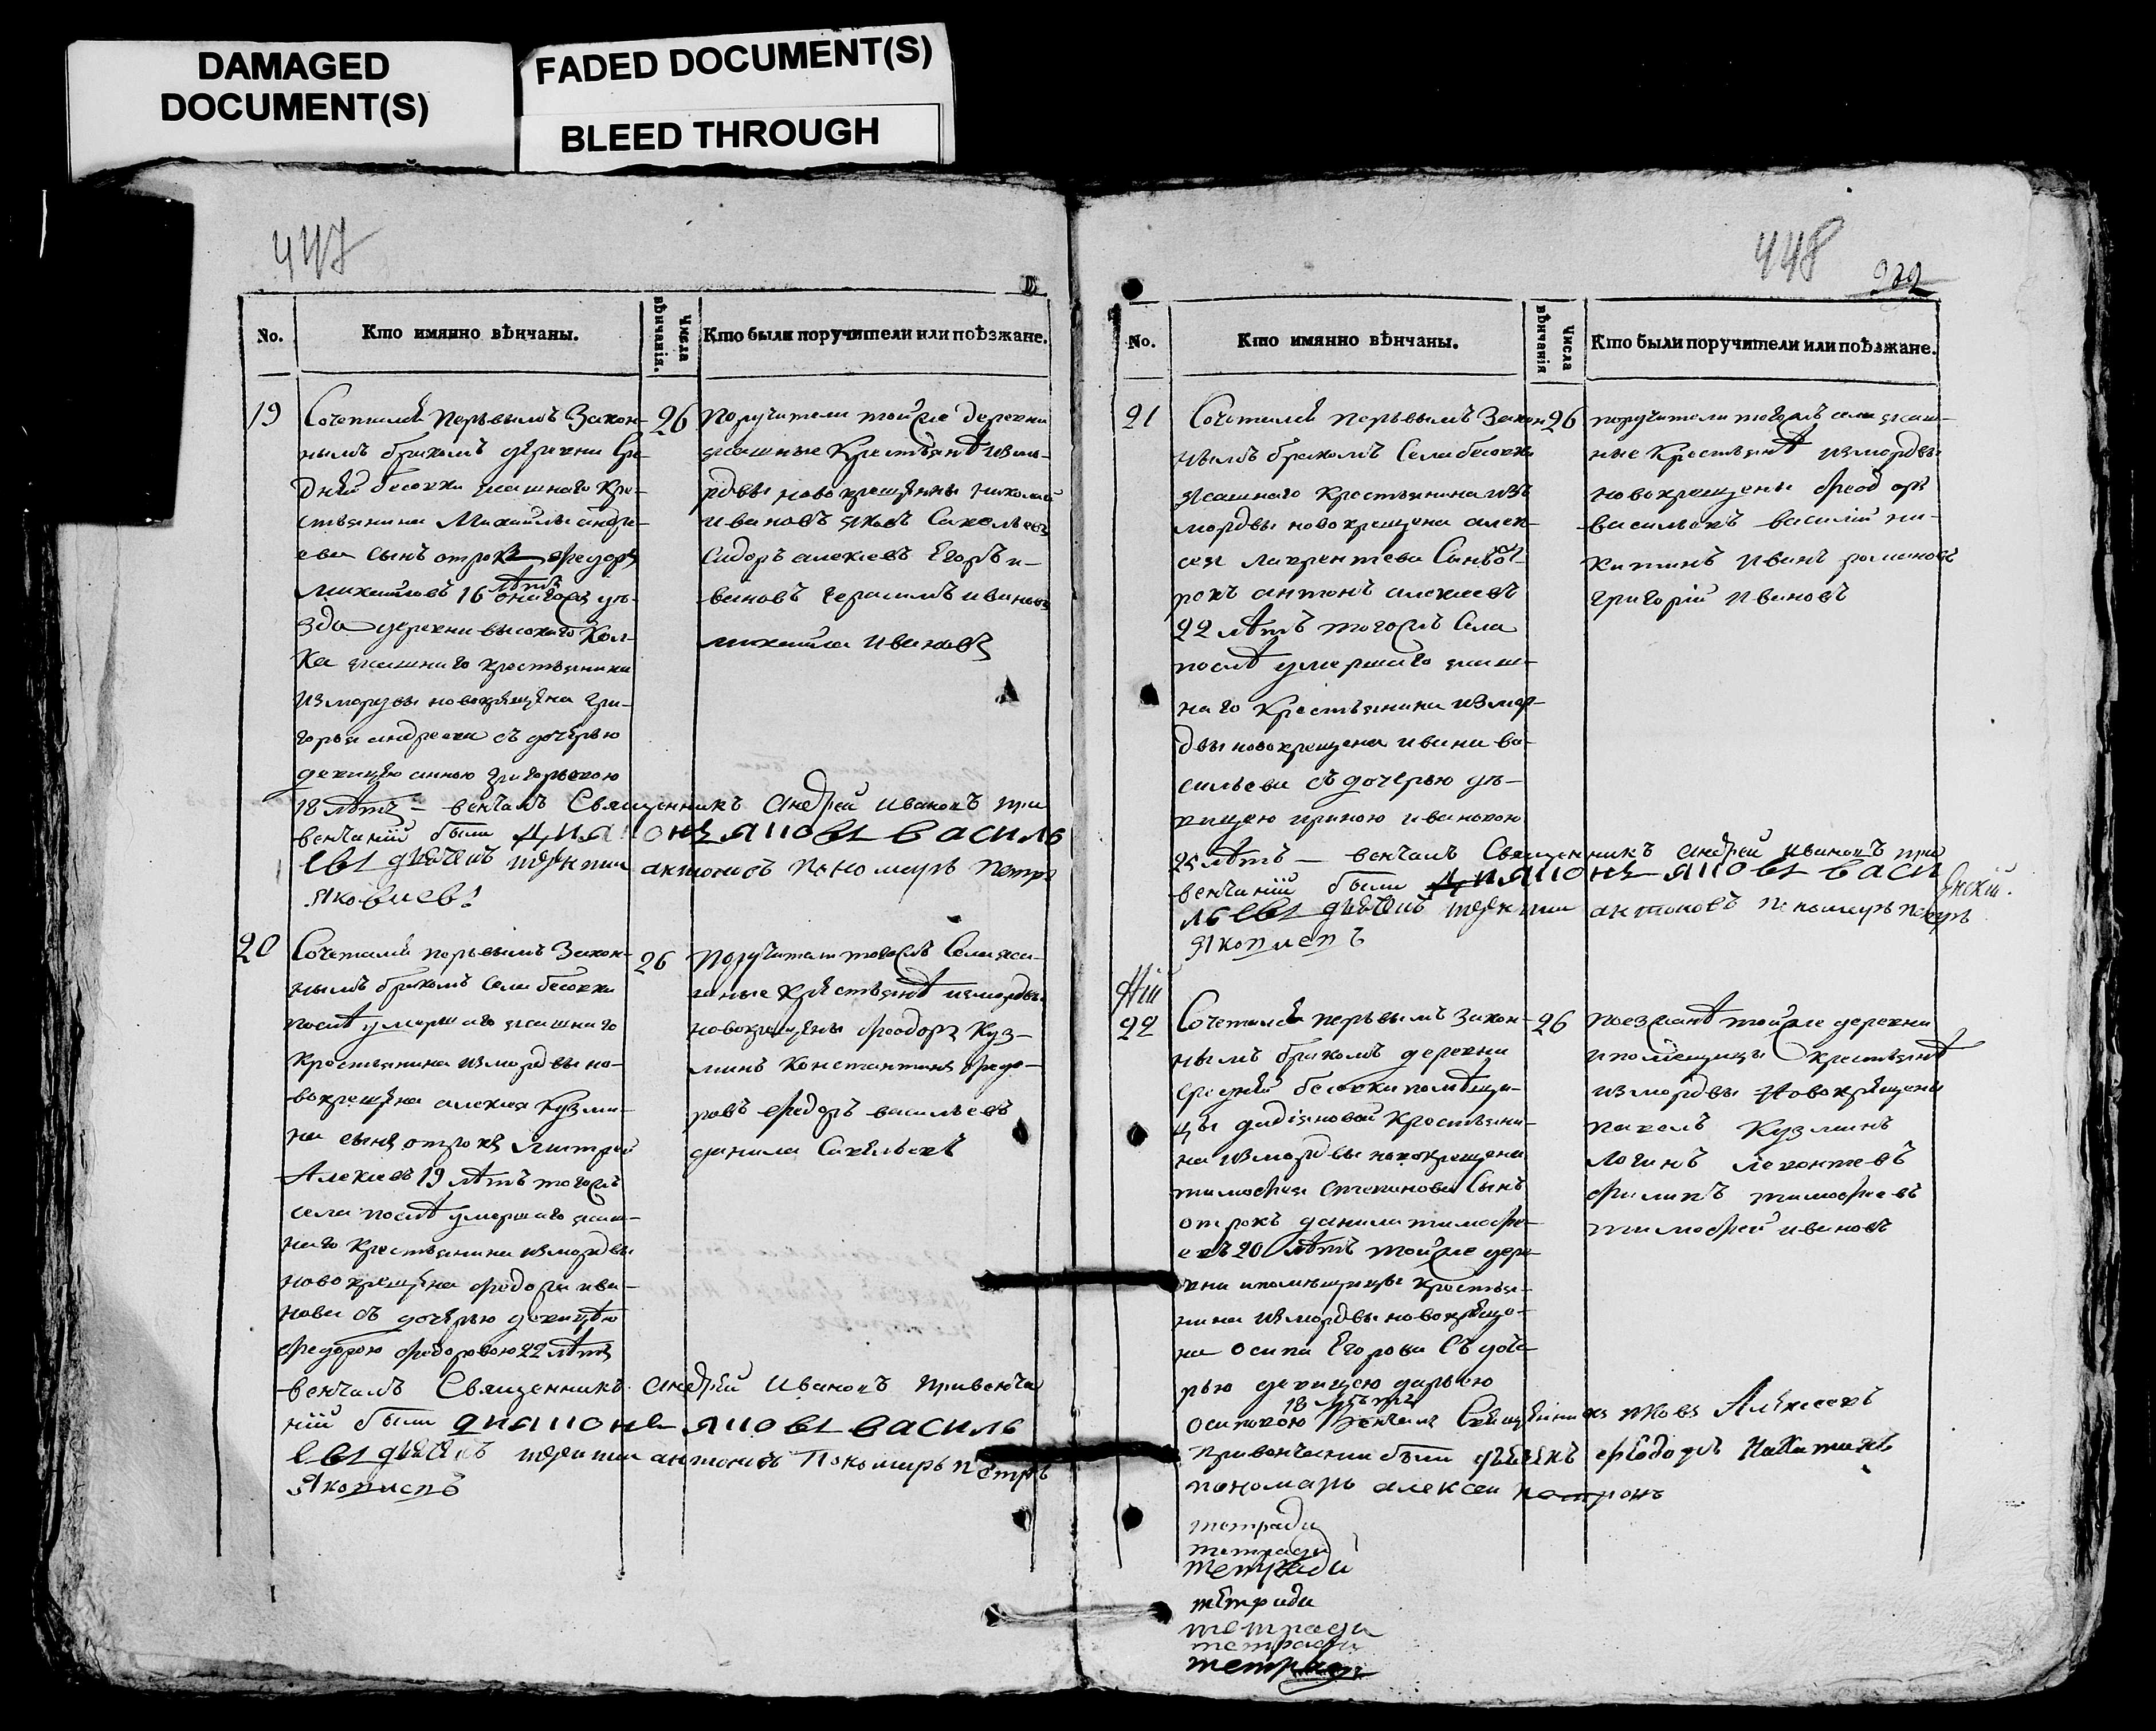 DAMAGED
DOCUMENT(S)
FADED DOCUMENT(S)
BLEED THROUGH
447
No.
Кто имянно вѣнчаны.
Числа вѣнчанія.
Кто были поручители или поѣзжане.
19
Сочетался первымъ закон-
нымъ бракомъ деревни Сре-
дней бесовки ясашнаго кре-
стьянина Михайлы андре-
ева сынъ отрокъ федоръ
михайловъ 16 лѣтъ онагожъ уѣ-
зда деревни высокаго Кол-
ка ясашнаго крестьянина
из мордвы новокрещена гри-
горья андреева съ дочерью
девицею анною григорьевою
18 лѣтъ – венчалъ Священникъ Андрей Ивановъ при
венчаніи были диаконъ яковъ василь
евъ дьячекъ терентии антоновъ пономарь петръ
яковлевъ
26
Поручители тойже деревни
ясашные Крестьянѣ из мо-
рдвы новокрещены николай
ивановъ яковъ Савельевъ
Сидоръ алексеевъ Егоръ и-
вановъ герасимъ ивановъ
михайла ивановъ
20
Сочетался первымъ закон-
нымъ бракомъ села бесовки
послѣ умершаго ясашнаго
крестьянина из мордвы но-
вокрещена алексея Кузми-
на сынъ отрокъ дмитрей
Алексеевъ 19 лѣтъ тогожъ
села послѣ умершаго ясаш-
наго крестьянина из мордвы
новокрещена федора ива-
нова съ дочерью девицею
федорою федоровою 22 лѣтъ
венчалъ Священникъ андрей Ивановъ при венча
ніи были диаконъ яковъ василь
евъ дьячекъ терентии антоновъ Пономарь петръ
Яковлевъ
26
Поручители тогожъ Села яса-
шные крестьянѣ из мордвы
новокрещены феодоръ Куз-
минъ Константинъ федо-
ровъ федоръ васильевъ
данила Савельевъ
448
No.
Кто имянно вѣнчаны.
Числа вѣнчанія
Кто были поручители или поѣзжане.
21
Сочетался первымъ Закон
нымъ бракомъ Села бесовки
ясашнаго крестьянина изъ
мордвы новокрещена алек-
сея лаврентева Сынъ от-
рокъ антонъ алексеевъ
22 лѣтъ тогожъ Села
послѣ умершаго ясаш-
наго крестьянина из мор-
двы новокрещена ивана ва-
сильева съ дочерью дѣ-
вицею ириною ивановою
25 лѣтъ – венчалъ Священникъ андрей Ивановъ при
венчаніи были диаконъ яковъ васи
льевъ дьячекъ терентии антоновъ пономарь петръ
Яковлевъ
26
поручители тогожъ села ясаш-
ные Крестьянѣ из мордвы
новокрещены феодоръ
васильевъ василій ни-
китинъ Иванъ романовъ
григорій Ивановъ
22
Сочетался первымъ закон-
нымъ бракомъ деревни
средней бесовки помѣщи-
цы крестьяни-
на из мордвы новокрещена
тимофея степанова Сынъ
отрокъ данила тимофе-
евъ 20 лѣтъ тойже дере-
вни и помѣщицы крестья-
нина из мордвы новокреще-
на осипа Егорова Съ доче-
рью девицею дарьею
осиповою 18 лѣтъ Венчалъ Священникъ яковъ Алексеевъ
при венчании были дьячекъ феодоръ Никитинъ
пономарь алексеи петровъ
26
поезжанѣ тойже деревни
и помещицы крестьянѣ
из мордвы Новокрещены
павелъ Кузминъ
логинъ леонтевъ
филипъ тимофеевъ
тимофей ивановъ
тетради
тетради
тетради
тетради
тетради
тетради
тетради